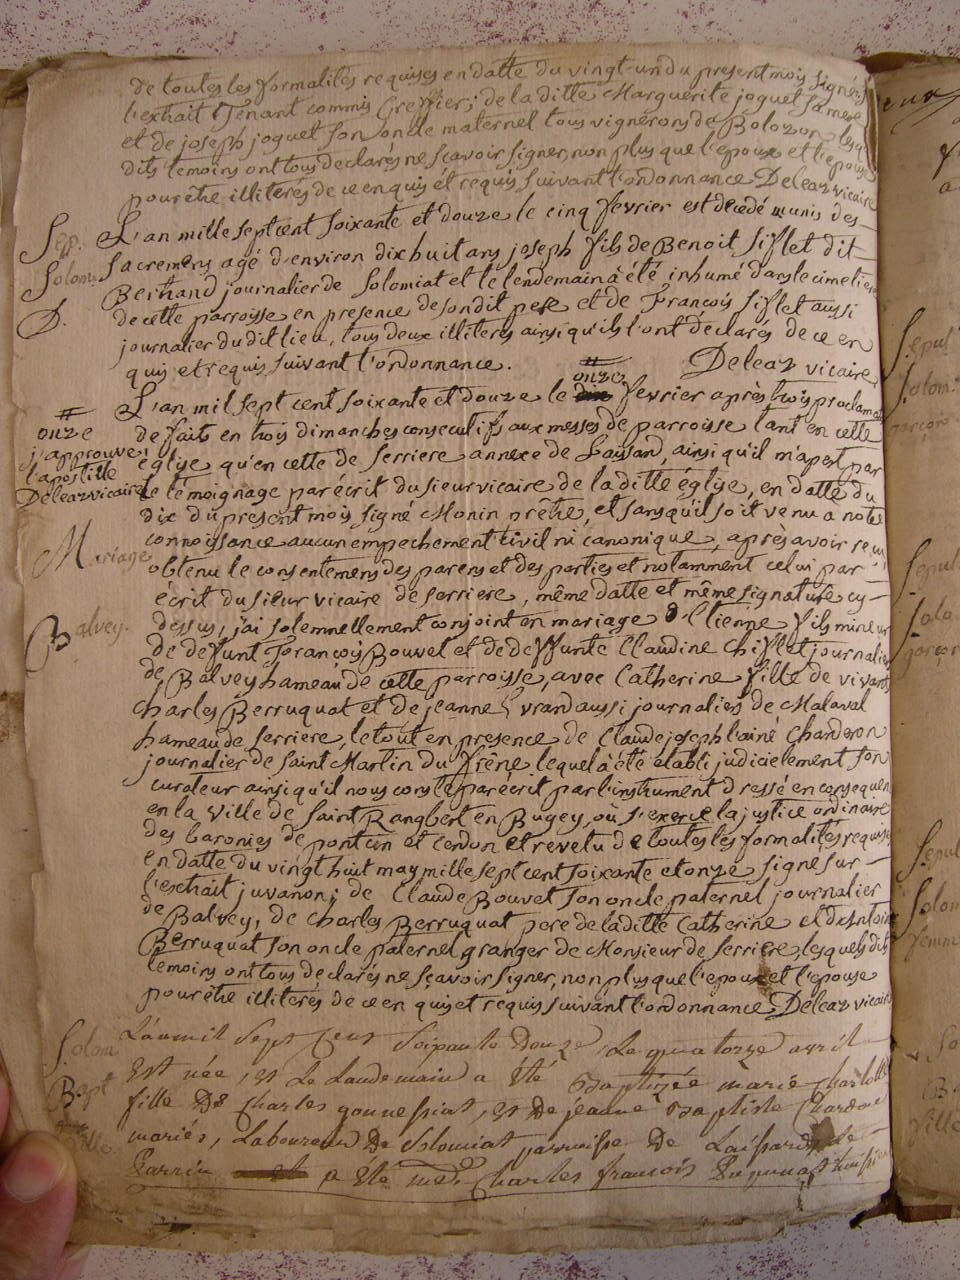 de toutes les formalités requises en datte du vingt-un du present mois signé sur
l'extrait Tenant commis Greffier; de la ditte Marguerite joguet sa mere
et de joseph joguet son oncle maternel tous vignérons de Bolozon lesq
dits temoins ont tous declarés ne sçavoir signer, non plus que l'epoux et l'epouse
pour être illiterés de ce enquis et requis suivant l'ordonnance Deleaz vicaire
Sep. L'an mille sept cent soixante et douze le cinq fevrier est decedé munis des
Solom. sacremens agé d'environ dix huit ans joseph fils de Benoit Sifflet dit
Berthand journalier de Solomiat et le lendemain à été inhumé dans le cimetiere
D. de cette parroisse en presence de son dit pere et de François Sifflet aussi
journalier du dit lieu, tous deux illiterés ainsi qu'ils l'ont déclarés de ce en
quis et requis suivant l'ordonnance. Deleaz vicaire
# onze
L'an mil sept cent soixante et douze le fevrier après trois proclama
# onze de faits en trois dimanches consecutifs aux messes de parroisse tant en cette
j'approuve église qu'en cette de serriere annexe de , ainsi qu'il m'apert par
l'apostille
Deleaz vicaire le témoignage par écrit du sieur vicaire de la ditte église, en datte du
dix du present mois signé Monin prêtre, et sans qu'il soit venu a notre
Mariage connoissance aucun empechement civil ni canonique, après avoir requ
obtenu le consentemens des parens et des parties et notamment celui par
écrit du sieur vicaire de serriere, même datte et même signature cy-
Balvey. dessus, j'ai solemnellement conjoint en mariage Etienne fils mineur
de deffunt François Bouvet et de deffunte Claudine Chifflet journalier
de Balvey hameau de cette parroisse, avec Catherine fille de vivant
Charles Berruquat et de jeanne aussi journaliers de Malaval
hameau de serriere, le tout en presence de Claude joseph l'ainé Charderon
journalier de saint Martin du frêne lequel à été établi judiciellement son
curateur ainsi qu'il nous conste par écrit par l'instrument dressé en consequen
en la ville de saint Rangbert en Bugey, où s'exerce la justice ordinaire
des baronies de poncin et cerdon et revetu de toutes les formalités requises
en datte du vingt huit may mille sept cent soixante et onze signé sur
l'extrait juvanon; de Claude Bouvet son oncle paternel journalier
de Balvey, de Charles Berruquat pere de la ditte Catherine et d'antoine
Berruquat son oncle paternel granger de Monsieur de serriere, lesquels dits
temoins ont tous declarés ne sçavoir signer, non plus que l'epoux et l'epouse
pour être illiterés de ce en quis et requis suivant l'ordonnance Deleaz vicaire
Solom. L'an mil sept Cens soixante douze, Le quatorze avril
Bapt est née, et Le Landemain a été Baptizée marie charlotte
fille De Charles gonnessiat, et De jeanne Baptiste
fille. mariés, Laboureur De Solomiat parroisse De
Parrin a été Charles françois
Sepul
Solom.
garçon
Sepul
Solo
garçon
Sepul
Solom
femme
So
B
ville